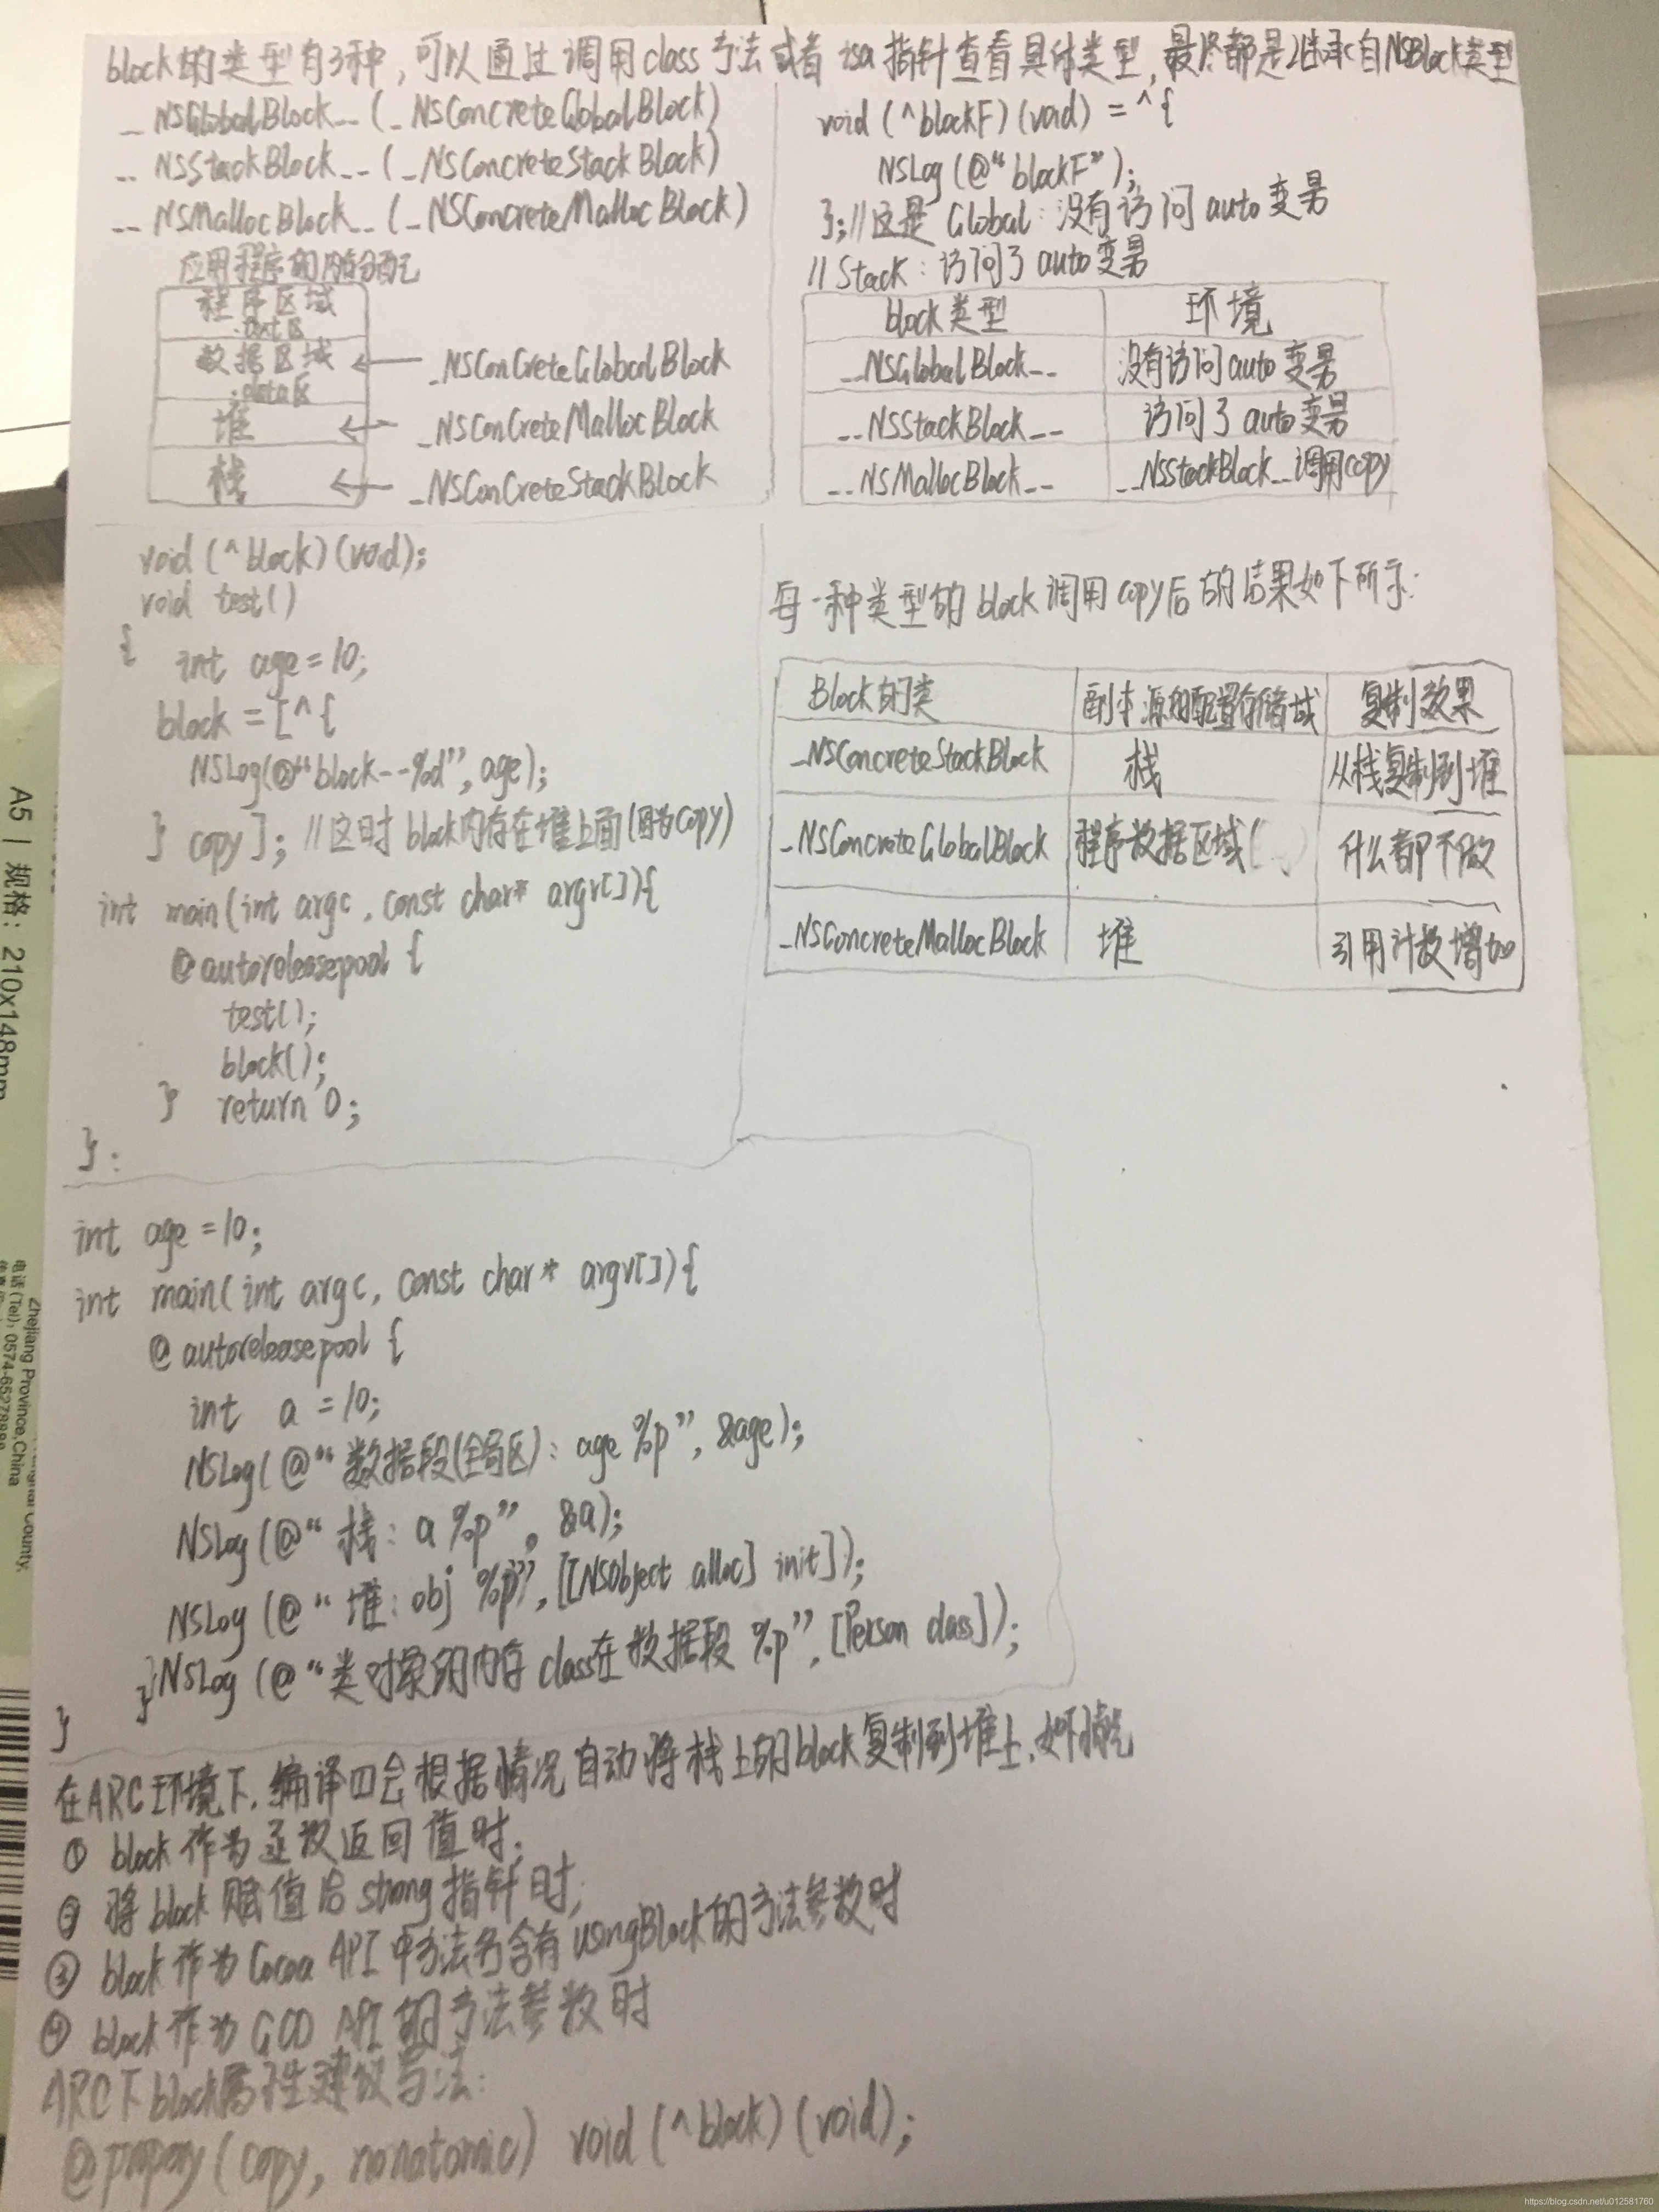 block的类型有3种,可以通过调用class方法或者isa指针查看具体类型,最终都是继承自NSBlock类型
__NSGlobalBlock__(_NSConcreteGlobalBlock)
__NSStackBlock__(_NSConcreteStackBlock)
__NSMallocBlock__(_NSConcreteMallocBlock)
应用程序的内存分配
程序区域
.text区
数据区域
.data区
← _NSConCreteGlobcalBlock
堆
← _NSConCreteMallocBlock
栈
← _NSConCreteStackBlock
void (^blockF)(void) = ^{
NSLog(@"blockF");
};//这是 Global:没有访问auto变量
//Stack:访问了auto变量
block类型 环境
__NSGlobalBlock__ 没有访问auto变量
__NSStackBlock__ 访问了auto变量
__NSMallocBlock__ __NSStackBlock__调用copy
void (^block)(void);
void test()
{ int age=10;
block = [^{
NSLog(@"block--%d", age);
} copy]; //这时block内存在堆上面(因为copy)
int main(int argc, const char* argv[]){
@autoreleasepool {
test();
block();
} return 0;
}
每一种类型的block调用copy后的结果如下所示:
Block的类 副本源的配置存储域 复制效果
_NSConcreteStackBlock 栈 从栈复制到堆
_NSConcreteGlobalBlock 程序数据区域( ) 什么都不做
_NSConcreteMallocBlock 堆 引用计数增加
int age =10;
int main(int argc, const char* argv[]){
@autoreleasepool {
int a =10;
NSLog(@"数据段(全局区): age %p", &age);
NSLog(@"栈: a %p", &a);
NSLog(@"堆: obj %p", [[NSObject alloc] init]);
NSLog(@"类对象的内存class在数据段 %p", [Person class]);
}
}
}
在ARC环境下,编译四会根据情况自动将栈上的block复制到堆上,如
① block作为函数返回值时;
② 将block赋值给strong指针时;
③ block作为Cocoa API中方法名含有usingBlock的方法参数时
④ block作为GCD API的方法参数时
ARC下block属性建议写法:
@propery(copy, nonatomic) void (^block)(void);
A5 | 规格: 210x148mm
Zhejiang Province,China
https://blog.csdn.net/u012581760